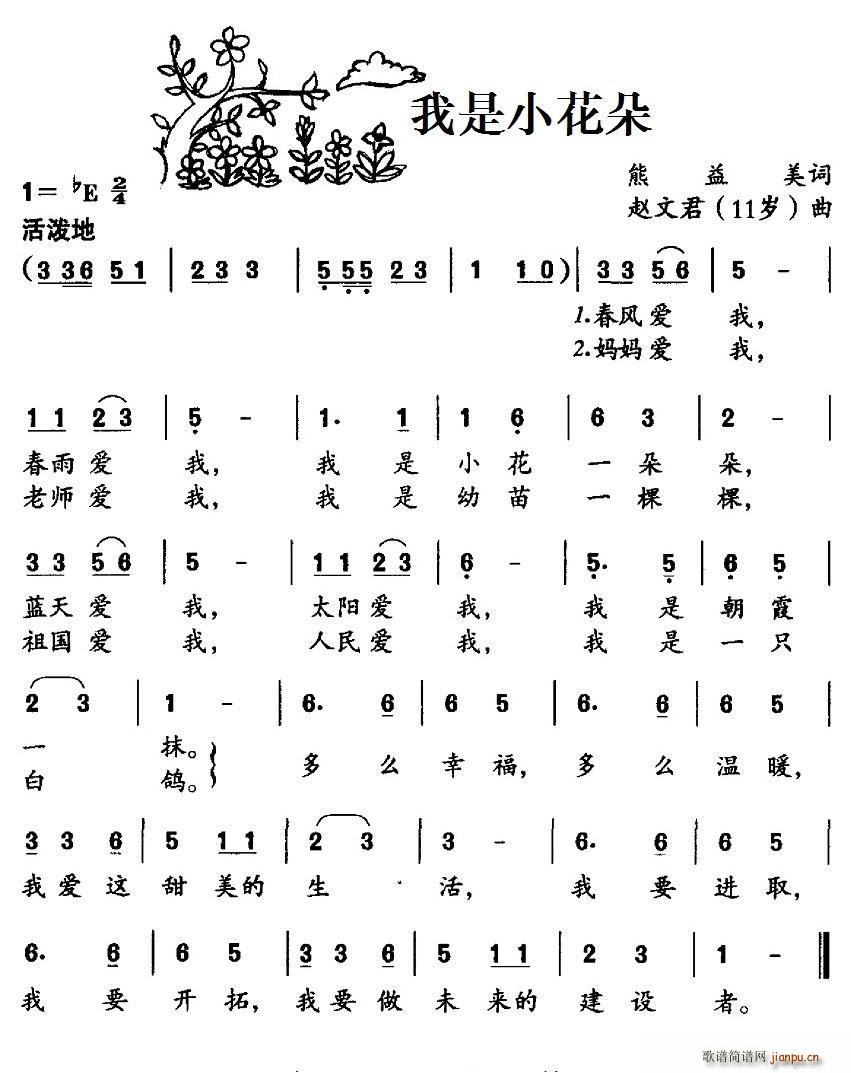 我是小花朵
熊益美词
赵文君（11岁）曲
1= ♭E 2/4
活泼地
（3 3 6 5 1 | 2 3 3 | 5 5 5 2 3 | 1 1 0）| 3 3 5 6 | 5 - |
1.春风爱我，
2.妈妈爱我，
1 1 2 3 | 5 - | 1. 1 | 1 6 | 6 3 | 2 - |
春雨爱我，我是小花一朵朵，
老师爱我，我是幼苗一棵棵，
3 3 5 6 | 5 - | 1 1 2 3 | 6 - | 5. 5 | 6 5 |
蓝天爱我，太阳爱我，我是朝霞
祖国爱我，人民爱我，我是一只
2 3 | 1 - | 6. 6 | 6 5 | 6. 6 | 6 5 |
一抹。多么幸福，多么温暖，
白鸽。
3 3 6 | 5 1 1 | 2 3 | 3 - | 6. 6 | 6 5 |
我爱这甜美的生活，我要进取，
6. 6 | 6 5 | 3 3 6 | 5 1 1 | 2 3 | 1 - ‖
我要开拓，我要做未来的建设者。
歌谱简谱网 jianpu.cn